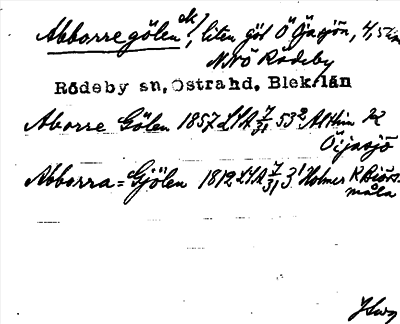 Abborregölen ek!, liten göl Ö Öjasjön, 4,5 km
NNÖ Rödeby
Rödeby sn, Östra hd, Blek. län
Aborre Gölen 1857 LSA 7/31 53² Althin K
Öijasjö
Abborra = Gjölen 1812 LSA 7/31 3¹ Holmer K Björs-
måla